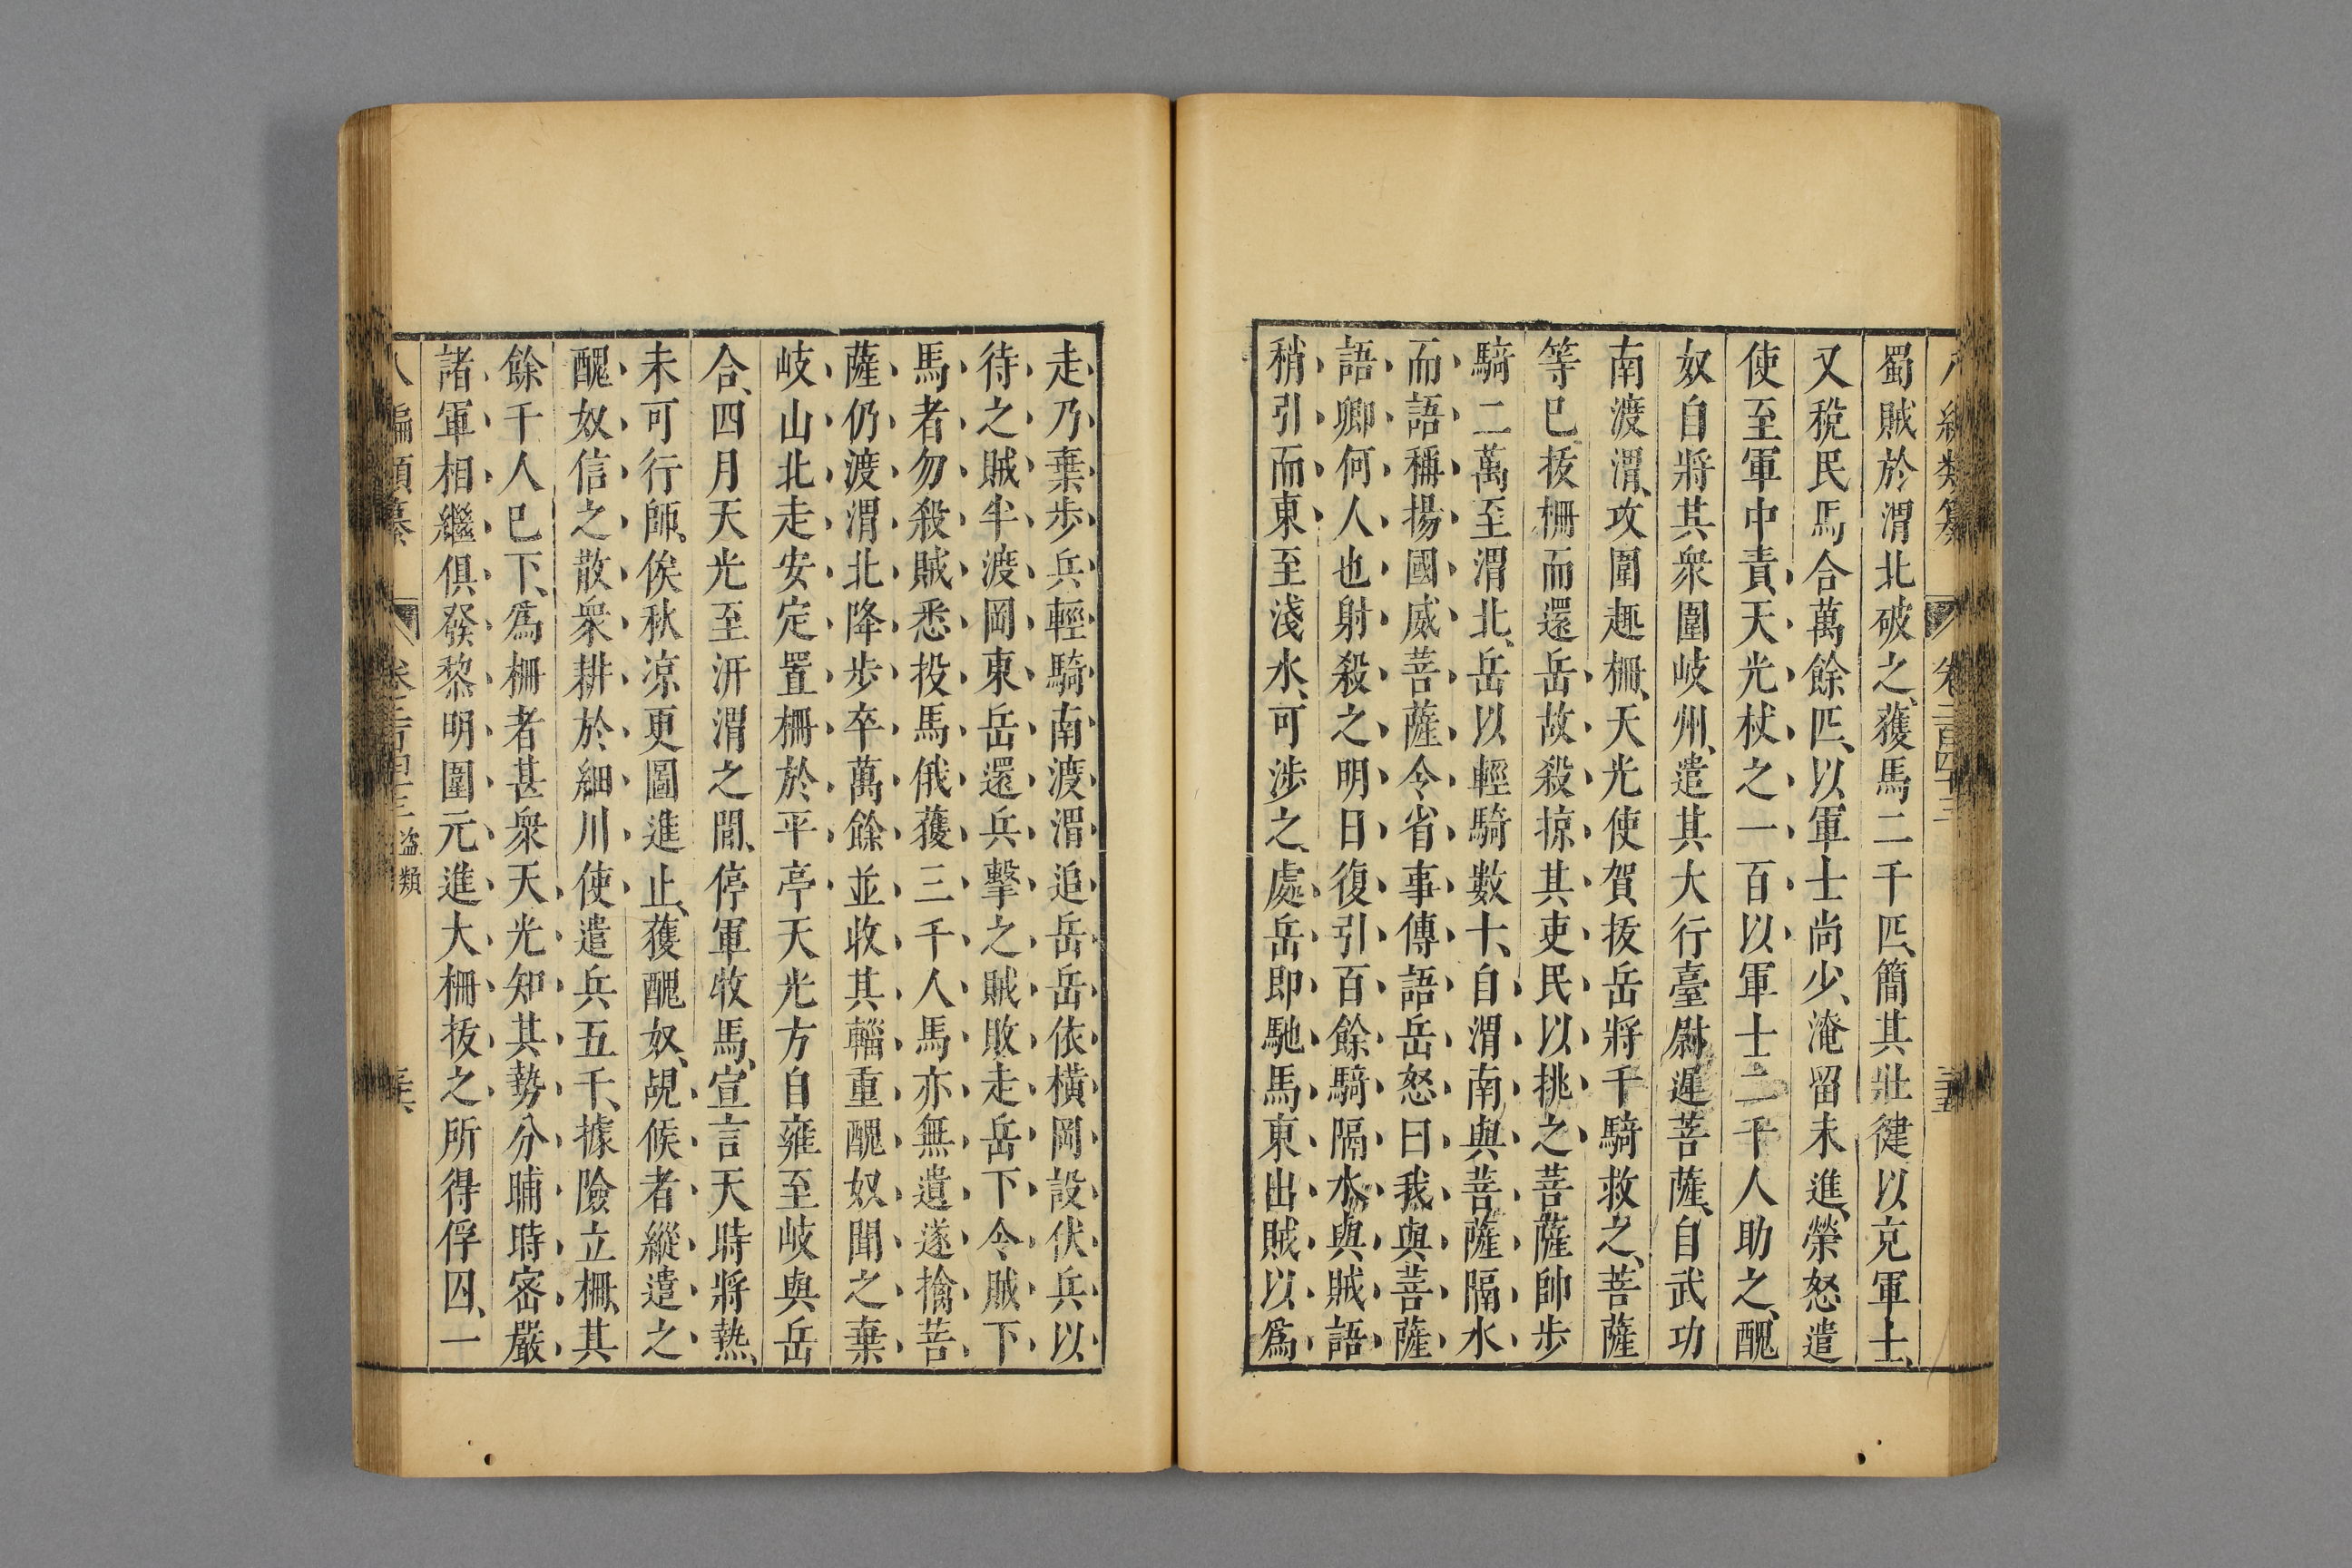 蜀賊於渭北破之、獲馬二千匹、簡其壯健以充軍士、
又稅民馬合萬餘匹、以軍士尚少、淹留未進、榮怒遣
使至軍中責天光杖之一百以軍士二千人助之、醜
奴自將其衆圍岐州、遣其大行臺尉遲菩薩、自武功
南渡渭、攻圍趣柵、天光使賀拔岳將千騎救之、菩薩
等已拔柵而還岳故殺掠其吏民以挑之菩薩帥步
騎二萬至渭北、岳以輕騎數十、自渭南與菩薩隔水
而語稱揚國威菩薩令省事傳語岳怒曰我與菩薩
語卿何人也射殺之明日復引百餘騎隔水與賊語
稍引而東至淺水、可涉之、處岳即馳馬東出賊以爲
走乃棄步兵輕騎南渡渭追岳岳依橫岡設伏兵以
待之賊半渡岡東岳還兵擊之賊敗走岳下令賊下
馬者勿殺賊悉投馬俄獲三千人馬亦無遺遂擒菩
薩仍渡渭北降步卒萬餘並收其輜重醜奴聞之棄
岐山北走安定置柵於平亭天光方自雍至岐與岳
合、四月天光至汧渭之間、停軍牧馬、宣言天時將熱、
未可行師、俟秋凉更圖進止、獲醜奴、覘候者縱遣之
醜奴信之散衆耕於細川使遣兵五千、據險立柵、其
餘千人巳下、爲柵者甚衆天光知其勢分晡時密嚴
諸軍相繼俱發黎明圍元進大柵拔之所得俘囚、一
八編類纂 卷二百四十三 盜類